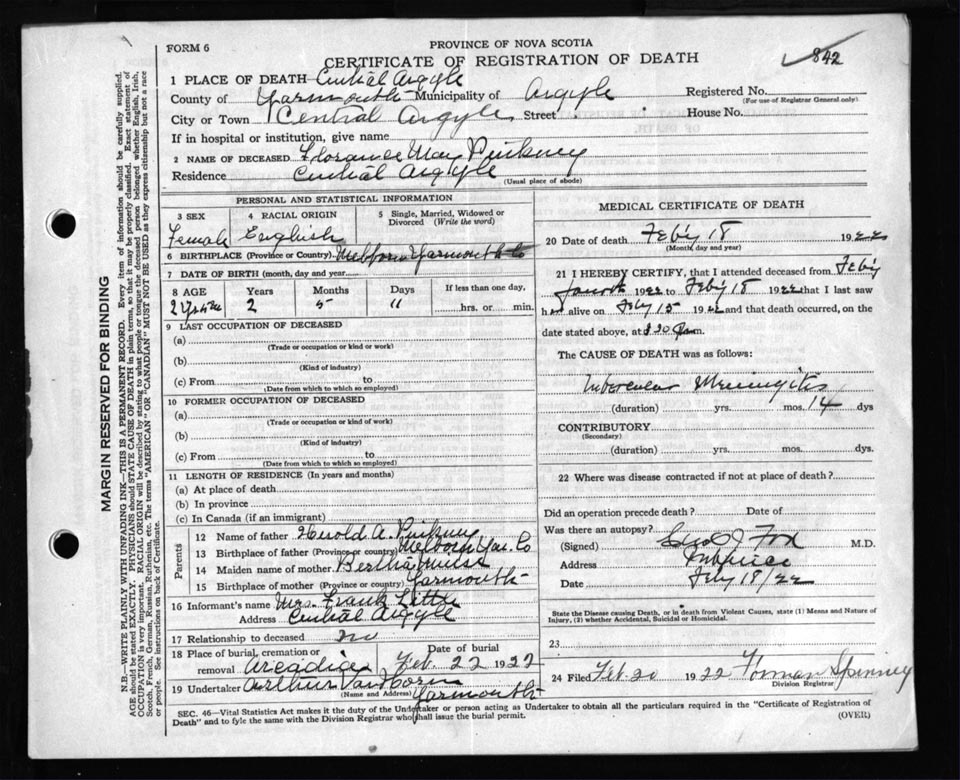 PROVINCE OF NOVA SCOTIA
FORM 6
CERTIFICATE OF REGISTRATION OF DEATH
842
1 PLACE OF DEATH Central Argyle
County of Yarmouth Municipality of Argyle Registered No.
(For use of Registrar General only)
City or Town Central Argyle Street House No.
If in hospital or institution, give name
2 NAME OF DECEASED Florance May Pinkney
Residence Central Argyle
(Usual place of abode)
PERSONAL AND STATISTICAL INFORMATION
3 SEX 4 RACIAL ORIGIN 5 Single, Married, Widowed or Divorced (Write the word)
Female English
6 BIRTHPLACE (Province or Country) Yarmouth Co
7 DATE OF BIRTH (month, day and year)
8 AGE Years Months Days If less than one day.
2 5 11 hrs. or min.
9 LAST OCCUPATION OF DECEASED
(a)
(Trade or occupation or kind or work)
(b)
(Kind of industry)
(c) From to
(Date from which to which so employed)
10 FORMER OCCUPATION OF DECEASED
(a)
(Trade or occupation or kind of work)
(b)
(Kind of industry)
(c) From to
(Date from which to which so employed)
11 LENGTH OF RESIDENCE (In years and months)
(a) At place of death
(b) In province
(c) In Canada (if an immigrant)
Parents
12 Name of father Harold A. Pinkney
13 Birthplace of father (Province or country) Melborn Yar. Co
14 Maiden name of mother Bertha
15 Birthplace of mother (Province or country) Yarmouth
16 Informant's name Mrs. Frank Little
Address Central Argyle
17 Relationship to deceased no
18 Place of burial, cremation or removal Arcadia Date of burial Feb. 22 1922
19 Undertaker Arthur VanHorn
(Name and Address) Yarmouth
MEDICAL CERTIFICATE OF DEATH
20 Date of death Feb'y 18 1922
(Month, day and year)
21 I HEREBY CERTIFY, that I attended deceased from Feb'y
fourth 1922 to Feb'y 18 1922 that I last saw
h alive on Feb'y 15 1922 and that death occurred, on the
date stated above, at 30 m.
The CAUSE OF DEATH was as follows:
Tubercular Meningitis
(duration) yrs. mos. 14 dys
CONTRIBUTORY
(Secondary)
(duration) yrs. mos. dys.
22 Where was disease contracted if not at place of death?
Did an operation precede death? Date of
Was there an autopsy?
(Signed) Fox M.D.
Address
Date Feb'y 18/22
State the Disease causing Death, or in death from Violent Causes, state (1) Means and Nature of
Injury, (2) whether Accidental, Suicidal or Homicidal.
23
24 Filed Feb. 20 1922 Forman Spinney
Division Registrar
SEC. 46—Vital Statistics Act makes it the duty of the Undertaker or person acting as Undertaker to obtain all the particulars required in the "Certificate of Registration of
Death" and to fyle the same with the Division Registrar who shall issue the burial permit.
(OVER)
MARGIN RESERVED FOR BINDING
N.B.—WRITE PLAINLY WITH UNFADING INK—THIS IS A PERMANENT RECORD. Every item of information should be carefully supplied.
AGE should be stated EXACTLY. PHYSICIANS should STATE CAUSE OF DEATH in plain terms, so that it may be properly classified. Exact statement of
OCCUPATION is very important. RACIAL ORIGIN will be described by stating to what people or tongue the deceased person belonged whether English, Irish,
Scotch, French, German, Russian, Ruthenian, etc. The terms "AMERICAN" OR "CANADIAN" MUST NOT BE USED as they express citizenship but not a race
or people. See instructions on back of Certificate.